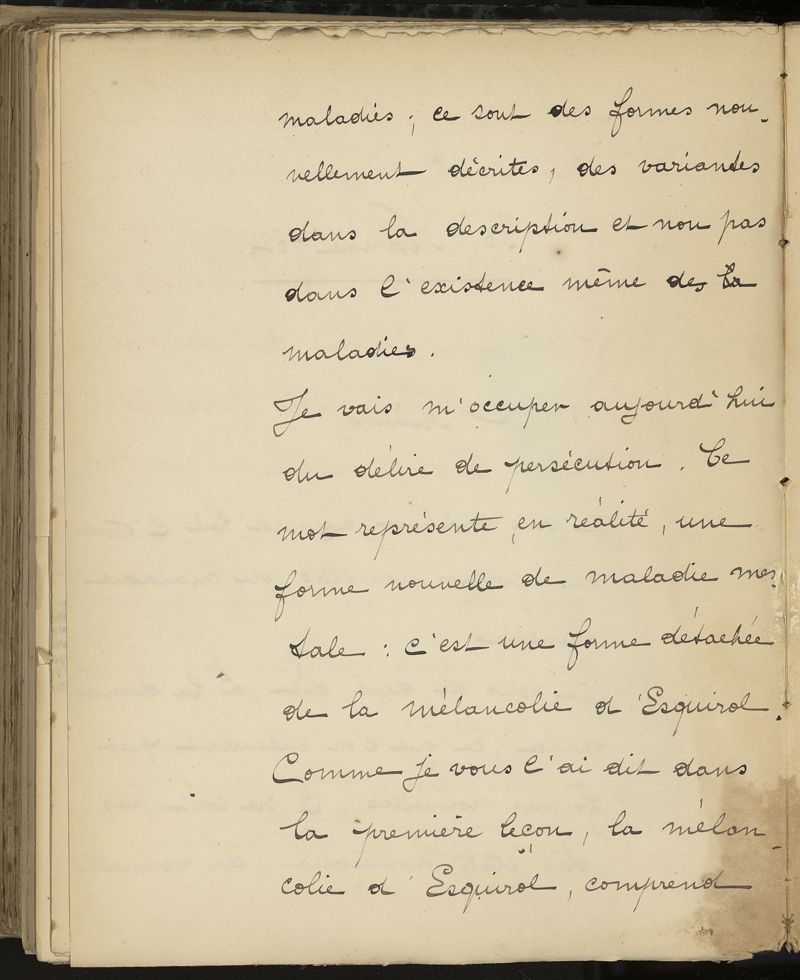 maladies ; ce sont des formes nou-
vellement décrites, des variantes
dans la description et non pas
dans l'existence même des la
maladies.
Je vais m'occuper aujourd'hui
du délire de persécution. Ce
mot représente, en réalité, une
forme nouvelle de maladie men-
tale : c'est une forme détachée
de la mélancolie d'Esquirol.
Comme je vous l'ai dit dans
la première leçon, la mélan-
colie d'Esquirol, comprend